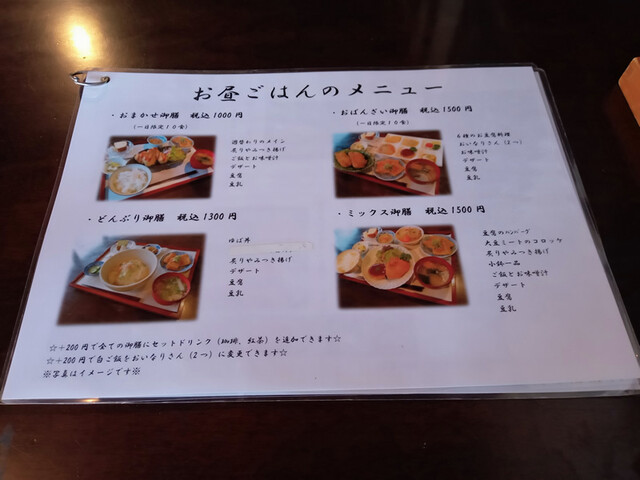 お昼ごはんのメニュー
・おまかせ御膳 税込1000円
(一日限定10食)
週替わりのメイン
炙りやみつき揚げ
ご飯とお味噌汁
デザート
豆腐
豆乳
・おばんざい御膳 税込1500円
(一日限定10食)
6種のお豆腐料理
おいなりさん(2つ)
お味噌汁
デザート
豆腐
豆乳
・どんぶり御膳 税込1300円
ゆば丼
炙りやみつき揚げ
デザート
豆腐
豆乳
・ミックス御膳 税込1500円
豆腐のハンバーグ
大豆ミートのコロッケ
炙りやみつき揚げ
小鉢一品
ご飯とお味噌汁
デザート
豆腐
豆乳
☆+200円で全ての御膳にセットドリンク(珈琲、紅茶)を追加できます☆
☆+200円で白ご飯をおいなりさん(2つ)に変更できます☆
※写真はイメージです※